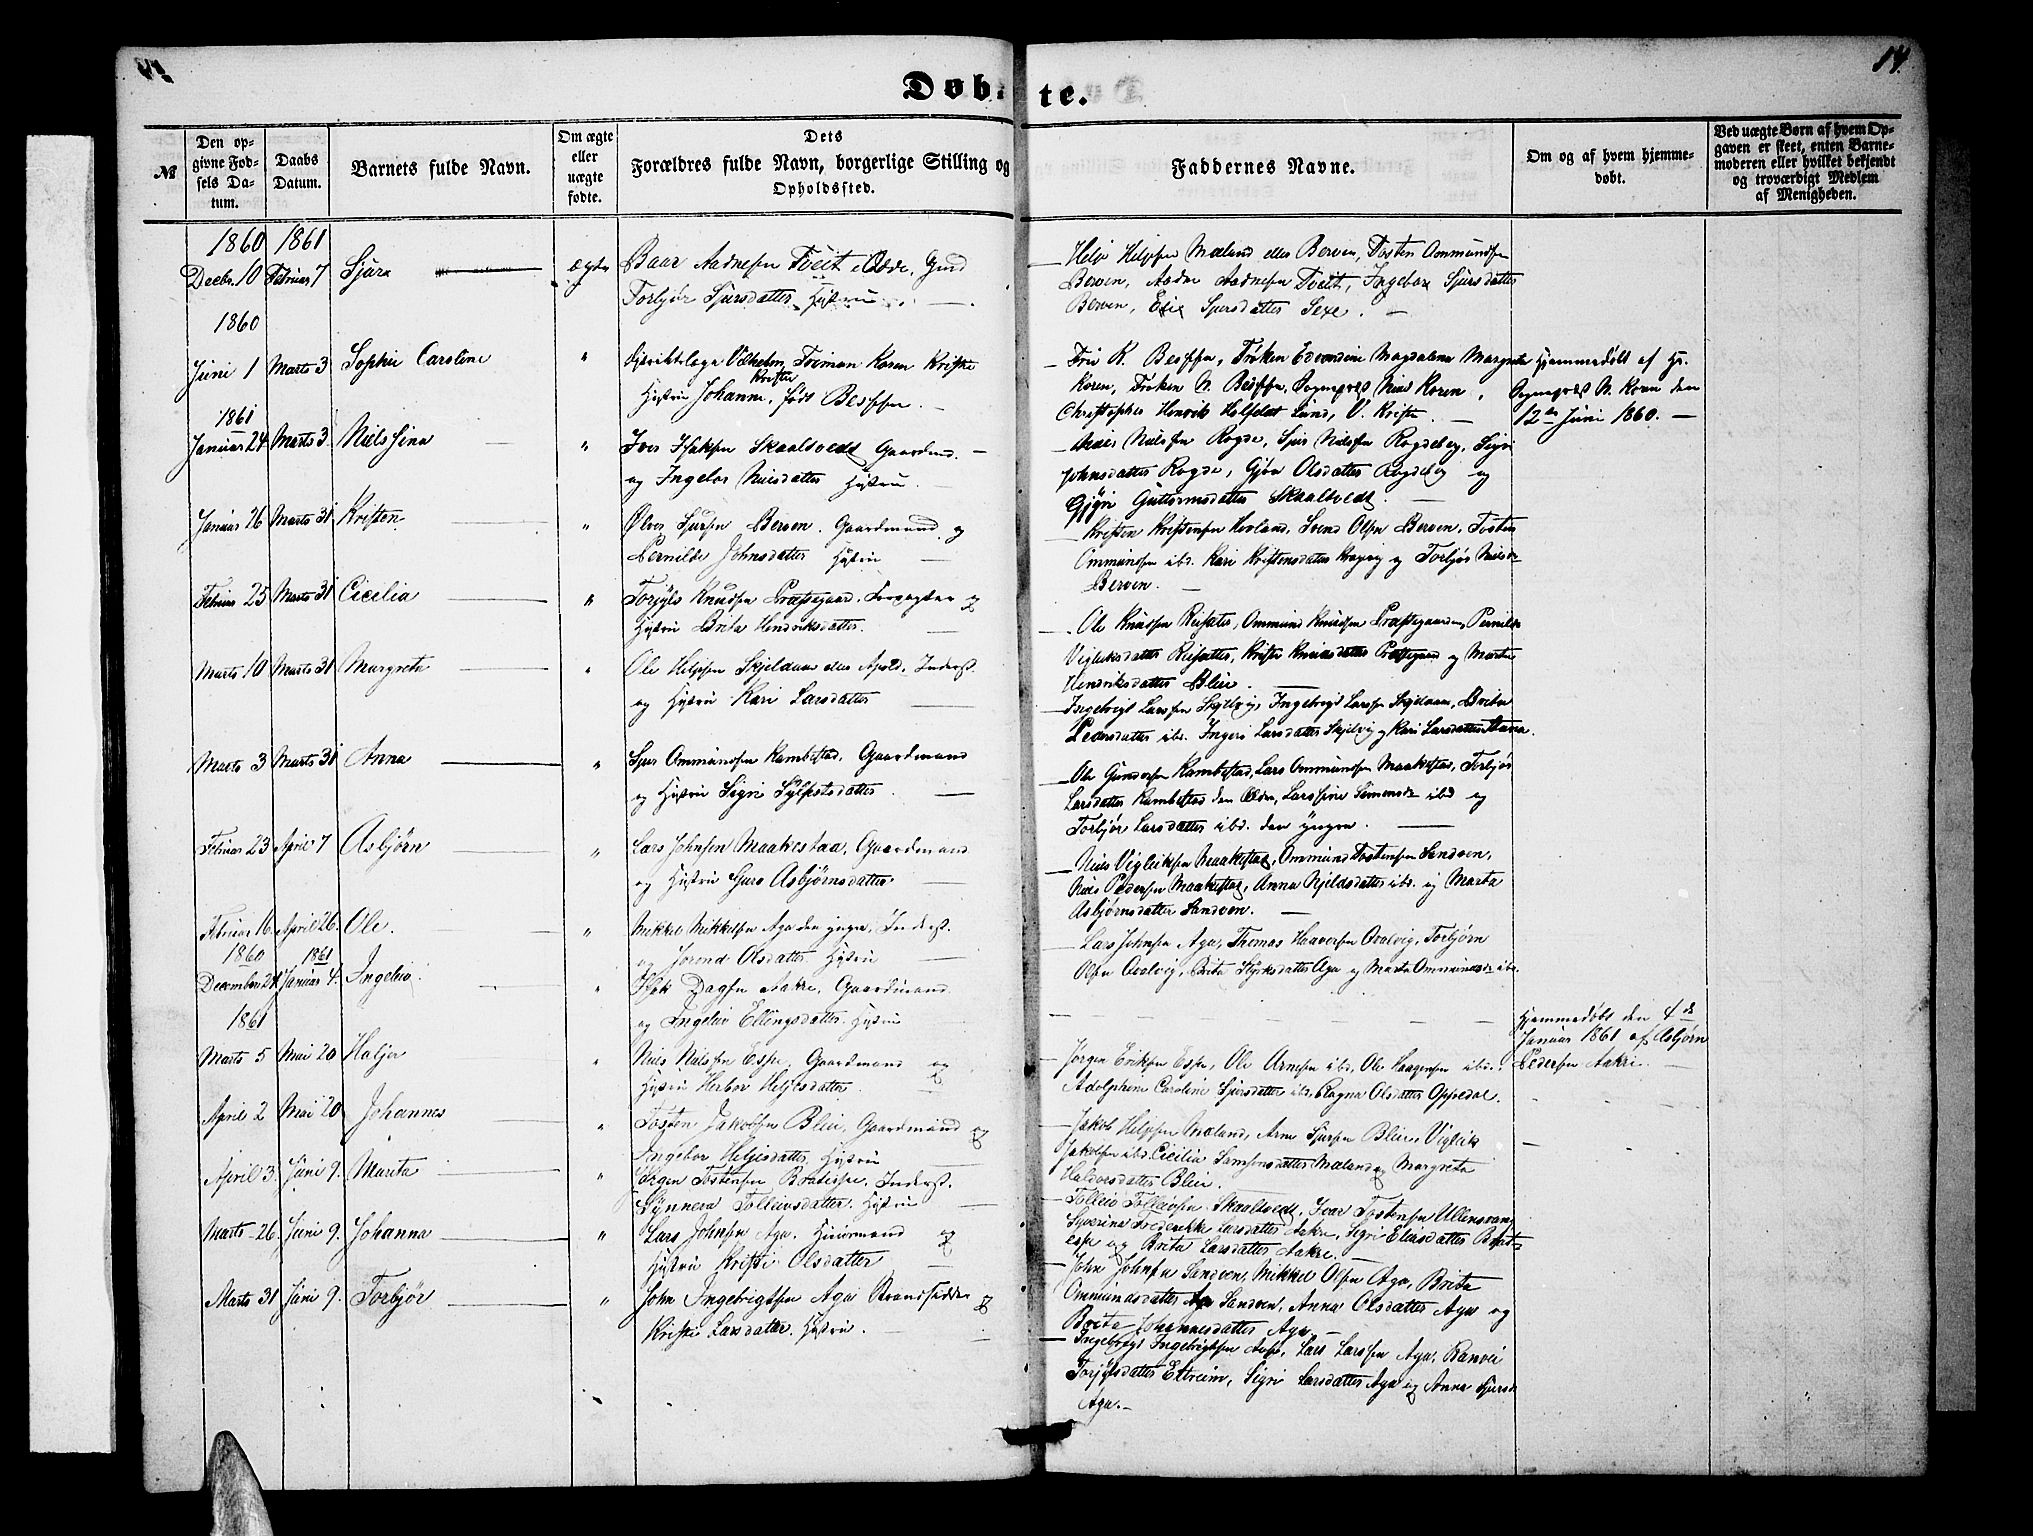 14.
Døbte.
№
Den op-
givne Fød-
sels Da-
tum.
Daabs
Datum.
Barnets fulde Navn.
Om ægte
eller
uægte
fødte.
Dets
Forældres fulde Navn, borgerlige Stilling og
Opholdssted.
Faddernes Navne.
Om og af hvem hjemme-
døbt.
Ved uægte Børn af hvem Op-
gaven er skeet, enten Barne-
moderen eller hvilket bekjendt
og troværdigt Medlem
af Menigheden.
1860 1861
Decbr. 10 Februar 7 Sjura ægte Baar Aadnesen Tveit i Odde, Gmd
Torbjør Sjursdatter Hustru
Helje Helgesen Mæland eller Berven, Tosten Ommundsen
Berven, Aadne Aadnesen Tveit, Ingebor Sjursdatter
Berven, Sjursdatter Sexe.
1860
Juni 1 Marts 3 Sophie Caroline " Distriktslæge Vilhelm Koren
Hustru Johanne, født
Koren, Frøken Sogneprest Niels Koren,
Christopher Henrik Lund,
Hjemmedøbt af Hr.
Sogneprest N. Koren den
12te Juni 1860.
1861
Januar 24 Marts 3. Nielssina " Iver Isaksen Skaaltvedt Gaardmd.
og Ingebor Nielsdatter Hustru
Nielsen Rogde, Sjur Nielsen Rogdeberg, Sigri
Johnsdatter Rogde, Gjøa Olsdatter Rogdeberg og
Guttormsdatter Skaaltvedt
Januar 26 Marts 31 Kristen " Ølver Sjursen Berven. Gaardmand og
Pernilde Johnsdatter Hustru
Kristen Kristensen Hovland, Svend Olsen Berven, Tosten
Ommundsen ibd. Kari Kristensdatter og Torbjør Nielsdr
Berven.
Februar 25 Marts 31 Cicilia " Torgils Knudsen Præstegaard, Forpagter og
Hustru Brita Hendriksdatter.
Ole Knudsen Reisæter, Ommund Knudsen Præstegaarden, Pernilde
Vigleiksdatter Reisæter, Kristi Knudsdatter Præstegaard og Marta
Hendriksdatter Bleie.
Marts 10 Marts 31 Margreta " Ole Helgesen Skjeldaas eller Apold, Inderst.
og Hustru Kari Larsdatter
Ingebrigt Larssen Skjelvig, Ingebrigt Larssen Skjeldaas, Brita
Pedersdatter ibd. Ingeri Larsdatter Skjelvig og Kari Larsdatter
Marts 3 Marts 31 Anna " Sjur Ommundsen Kambestad, Gaardmand
og Hustru Sigri Sylfestsdatter.
Ole Gundersen Kambestad, Lars Ommundsen Maakestad, Torbjør
Larsdatter Kambestad den Eldre, Larssine Simonsdr ibd og
Torbjør Larsdatter ibd. den yngre.
Februar 23 April 7 Asbjørn " Lars Johnsen Maakestad, Gaardmand
og Hustru Guro Asbjørnsdatter
Niels Vigleiksen Maakestad, Ommund Tostensen Sandven,
Niels Pedersen Maakestad, Anna Kjeldsdatter ibd. og Marta
Asbjørnsdatter Sandven.
Februar 16. April 26. Ole. " Mikkel Mikkelsen Aga den yngre, Inderst.
og Jorend Olsdatter Hustru
Lars Johnsen Aga, Thomas Haaversen Qvalvig, Torbjørn
Olsen Qvalvig, Brita Styrksdatter Aga og Marta Ommundsdr ibd.
1860 1861
December 24 Januar 4. Ingeleiv. " Isak Dagsen Aakre, Gaardmand
og Ingeleiv Ellingsdatter. Hustru
Hjemmedøbt den 4de
Januar 1861 af Asbjørn
Pedersen Aakre.
1861
Marts 5 Mai 20 Heljer " Niels Nielsen Espe, Gaardmand og
Hustru Herbor Heljesdatter.
Jørgen Eriksen Espe, Ole Arnesen ibd. Ole Haagensen ibd.
Adolphine Caroline Sjursdatter ibd. Ragna Olsdatter Oppedal.
April 2 Mai 20 Johannes " Tosten Jakobsen Bleie, Gaardmand og
Ingebor Heljesdatter, Hustru
Jakob Helgesen Mæland, Arne Sjursen Bleie, Vigleik
Jakobsen ibd. Cicilia Samsonsdatter Mæland og Margreta
Haldorsdatter Bleie.
April 3. Juni 9. Marita " Jørgen Tostensen Bratespe, Inderst.
Synneva Tolleivsdatter. Hustru
Tolleiv Tolleivsen Skaaltvedt, Ivar Tostensen Ullensvang
Syverina Frederikke Larsdatter Aakre, Sigri Eliasdatter Brat-
espe og Brita Larsdatter Aakre.
Marts 26. Juni 9. Johanna " Lars Johnsen Aga, Huusmand og
Hustru Kristi Olsdatter
John Johnsen Sandven, Mikkel Olsen Aga, Brita
Ommundsdatter Sandven, Anna Olsdatter Aga og
Brita Johannesdatter Aga
Marts 31 Juni 9. Torbjør " John Ingebrigtsen Aga Strandsidder og
Kristi Larsdatter. Hustru.
Ingebrigt Ingebrigtsen Aga, Lars Larssen Aga, Ranvei
Torgilsdatter Eitreim, Sigri Larsdatter Aga og Anna Sjursdr
Aga.